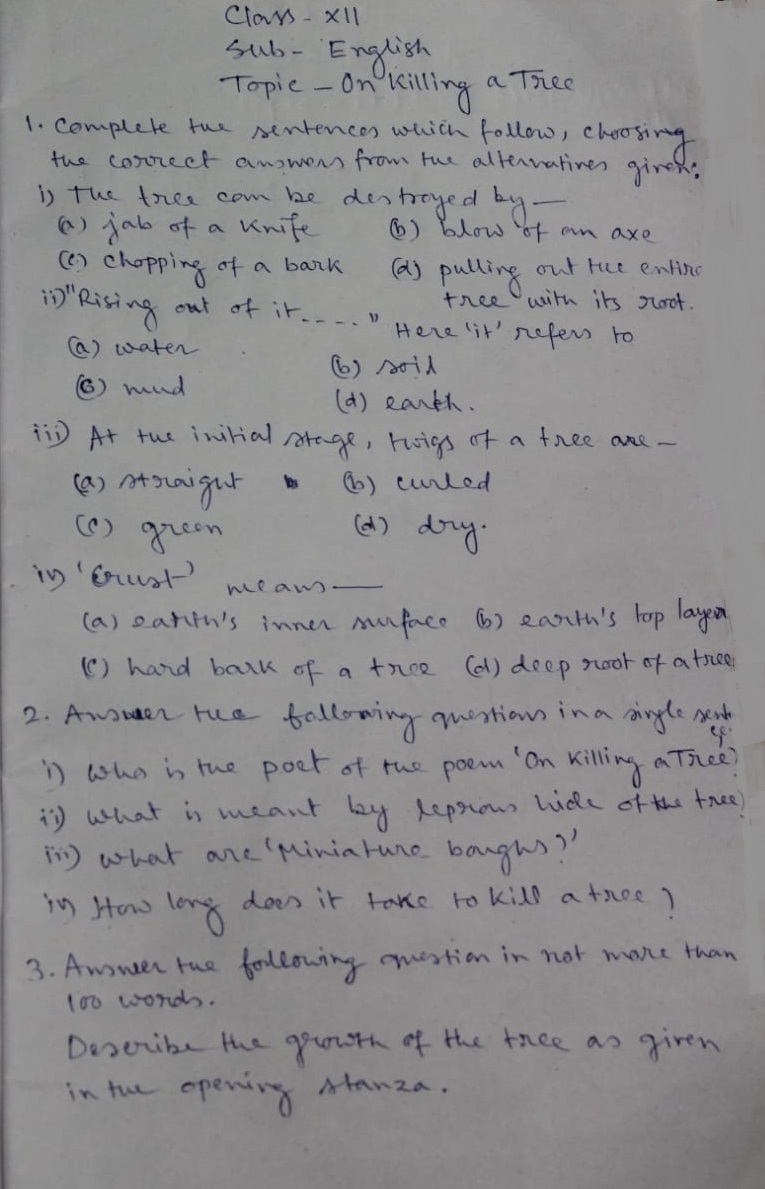 Class - XII
Sub - English
Topic - On Killing a Tree
1. Complete the sentences which follow, choosing
the correct answers from the alternatives given:
i) The tree can be destroyed by —
(a) jab of a knife (b) blow of an axe
(c) chopping of a bark (d) pulling out the entire
tree with its root.
ii) "Rising out of it....." Here 'it' refers to
(a) water (b) soil
(c) mud (d) earth.
iii) At the initial stage, twigs of a tree are —
(a) straight (b) curled
(c) green (d) dry.
iv) 'Crust' means —
(a) earth's inner surface (b) earth's top layer
(c) hard bark of a tree (d) deep root of a tree
2. Answer the following questions in a single sent
ce.
i) Who is the poet of the poem 'On Killing a Tree?
ii) What is meant by leprous hide of the tree?
iii) What are 'Miniature boughs?'
iv) How long does it take to kill a tree?
3. Answer the following question in not more than
100 words.
Describe the growth of the tree as given
in the opening stanza.